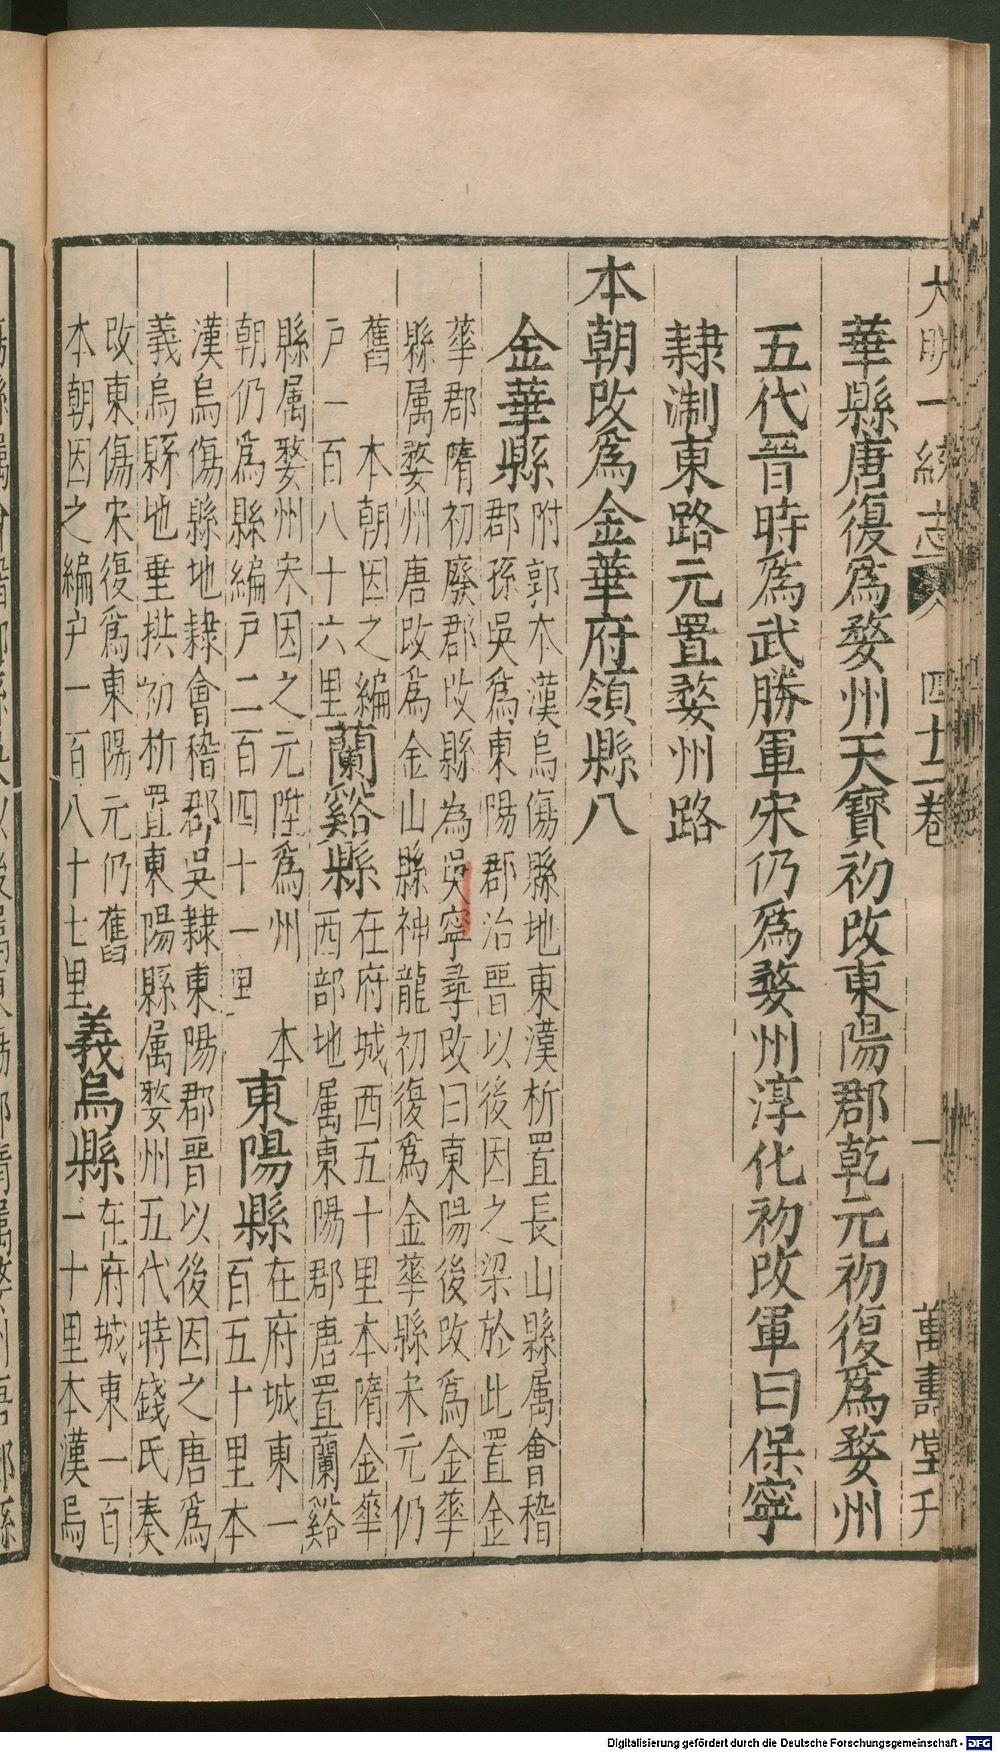 大明一統志 四十二卷 一 萬壽堂刊
華縣唐復爲婺州天寳初改東陽郡乾元初復爲婺州
五代晉時爲武勝軍宋仍爲婺州淳化初改軍曰保寧
隸淛東路元置婺州路
本朝改爲金華府領縣八
金華縣
附郭本漢烏傷縣地東漢析置長山縣属會稽
郡孫吳爲東陽郡治晉以後因之梁於此置金
華郡隋初廢郡改縣為吳寧尋改曰東陽後改爲金華
縣属婺州唐改爲金山縣神龍初復爲金華縣宋元仍
舊 本朝因之編
户一百八十六里
蘭谿縣
在府城西五十里本隋金華
西部地属東陽郡唐置蘭谿
縣属婺州宋因之元陞爲州 本
朝仍爲縣編戸二百四十一里
東陽縣
在府城東一
百五十里本
漢烏傷縣地隸會稽郡吳隸東陽郡晉以後因之唐爲
義烏縣地垂拱初析置東陽縣属婺州五代時錢氏奏
改東傷宋復爲東陽元仍舊
本朝因之編户一百八十七里
義烏縣
在府城東一百
一十里本漢烏
Digitalisierung gefördert durch die Deutsche Forschungsgemeinschaft - DFG